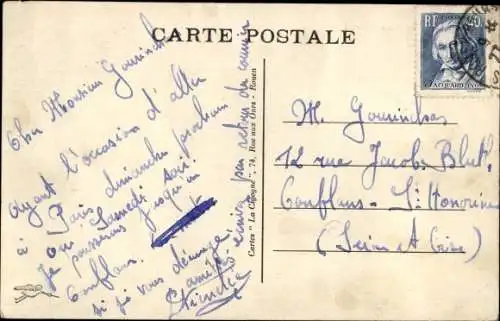 CARTE POSTALE
Cher Monsieur
Ayant l'occasion d'aller
à Paris dimanche prochain
ou Samedi soir.
Je passerais jusqu'à
Conflans.
si je vous dérange,
par retour du courrier
amitiés
Cartes "La Cigogne", 74, Rue aux Ours - Rouen
RF
M.
12 rue Jacob
Conflans - St Honorine
(Seine et Oise)